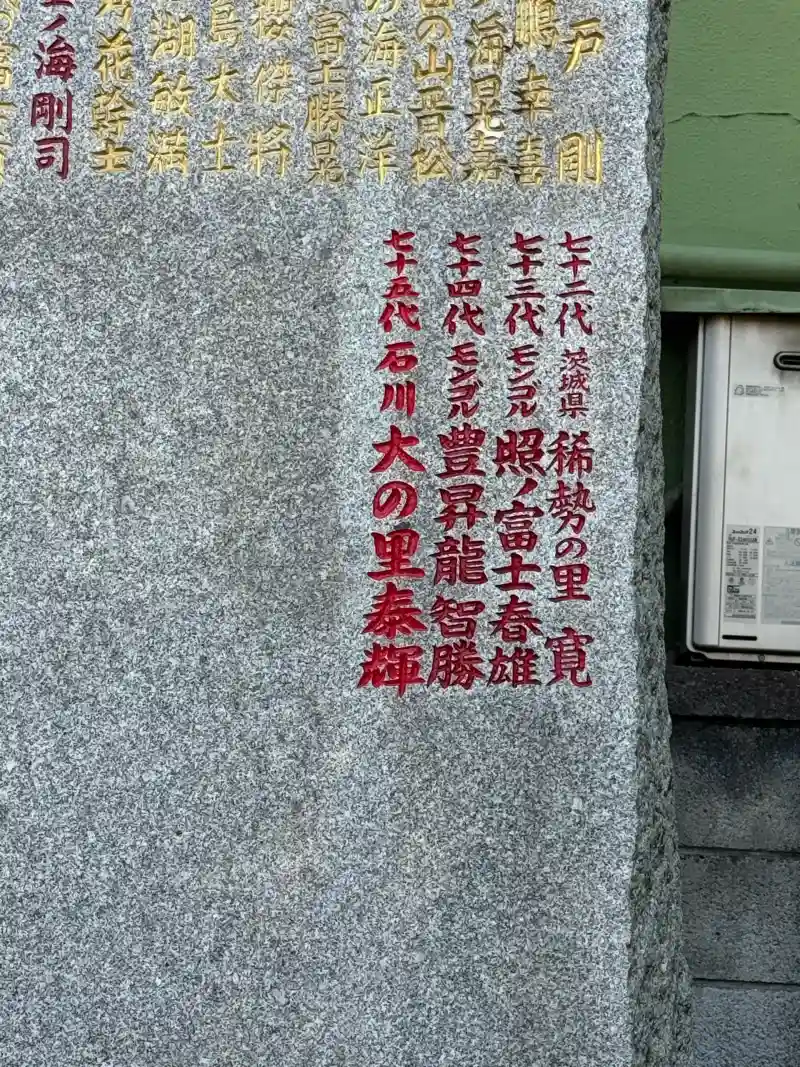 戸 剛
鵬幸喜
海晃嘉
の山晋松
の海正洋
富士勝晃
櫻傑将
島大士
湖敏満
花幹士
ノ海剛司
七十二代 茨城県 稀勢の里 寛
七十三代 モンゴル 照ノ富士春雄
七十四代 モンゴル 豊昇龍智勝
七十五代 石川 大の里泰輝